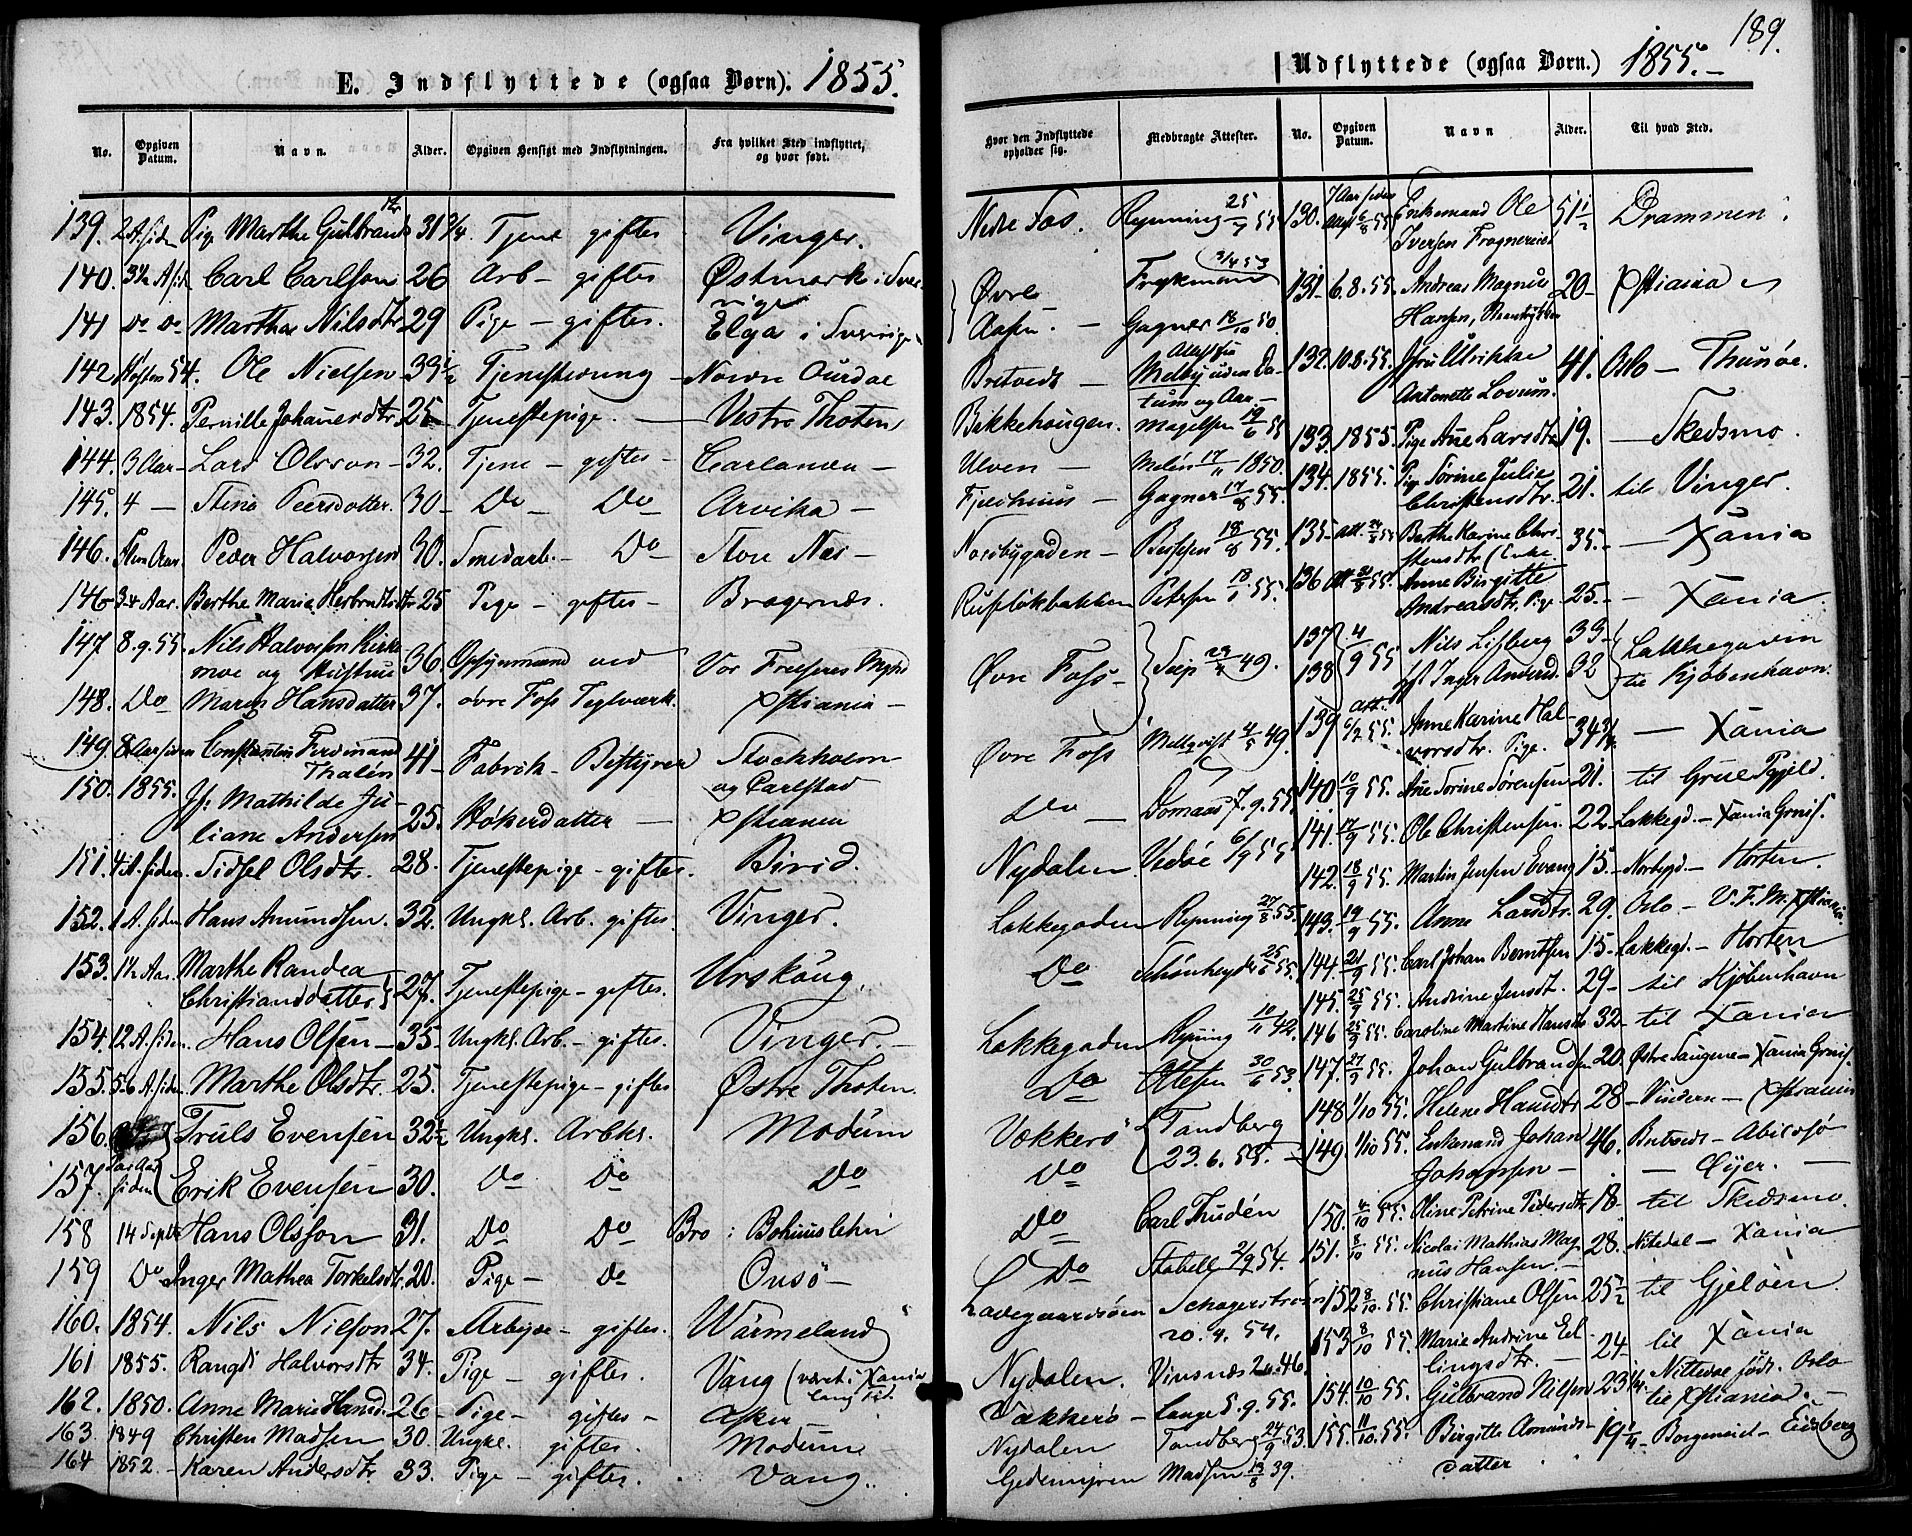 189.
E. Indflyttede (ogsaa Børn). 1855.
No. Opgiven Datum. Navn. Alder. Opgiven Hensigt med Indflytningen. Fra hvilket Sted indflyttet, og hvor født.
139. 2 A. siden Pige Marthe Gulbrandsdtr 31 3/4. Tjene giftes Vinger.
140. 3½ A. sid. Carl Carlson 26 Arb- giftes Østmark i Sverrige
141 Do Do Marthe Nilsdtr 29 Pige - giftes. Elga i Sverrige
142 Høsten 54. Ole Nielsen 33½ Tjenestedreng - Nordre Ourdal
143. 1854. Pernille Johanesdtr 25 Tjenestepige. - Vestre Thoten
144. 3 Aar - Lars Olsson - 32. Tjene - giftes - Carlanda -
145. 4 - Stina Peersdotter. 30 - Do - Do - Arvika -
146. Flere Aar. Peder Halvorsen 30. Smedarb. - Do Store Næs -
146 3-4 Aar. Berthe Marie Herbrandsdtr 25 Pige - giftes - Bragernæs.
147 8.9.55. Nils Halvorsen Kirke-
moe og Hustrue 36 Opsynsmand ved Vor Frelsers Mghd
148. Do Maren Hansdatter 37. øvre Foss Teglværk. Xstiania -
149. 8 Aar siden Constantin Ferdinand
Thalén 41 - Fabrik - Bestyrer Stockholm
og Carlstad
150. 1855. Jf: Mathilde Ju-
liane Andersen 25. Høkerdatter - Xstiania
151. 4 A. siden. Sidsel Olsdtr. 28. Tjenestepige - giftes. Birid.
152. 1 A. siden Hans Amundsen. 32. Ungkl. Arb. giftes. Vinger.
153. 1½ Aar. Marthe Randea
Christiansdatter 27. Tjenestepige - giftes. Urskoug.
154. 12 A. siden. Hans Olsen - 35. Ungkl. Arb. - giftes. Vinger. -
155. 5-6 A. siden Marthe Olsdtr. 25. Tjenestepige - giftes Østre Thoten.
156. Truls Evensen 32½ Ungkl. Arbkl. Modum
157. Par Aar siden Erik Evensen 30. Do Do Do
158 14 Septbr Hans Olsson 31. Do Do Bro i Bohuuslehn
159 Do Inger Mathea Torkelsdtr. 20. Pige - do Onsö -
160. 1854. Nils Nilson 27. Arbejde - giftes. Wärmeland
161 1855. Rangdi Halvorsdtr 34. Pige - giftes. Vang (været i Xania
lang Tid.
162. 1850. Anne Marie Hansd. 26 - Pige - giftes - Asker -
163. 1849 Christen Madsen 30. Ungkl. giftes. Modum
164 1852. - Karen Andersdtr. 33. Pige - giftes. Vang.
Udflyttede (ogsaa Børn.) 1855. -
Hvor den Indflyttede opholder sig. Medbragte Attester. No. Opgiven Datum. Navn Alder. Til hvad Sted.
Nedre Fos. Rynning 25/7 55 130. 7 Aar siden Attest 6/8 55 Enkemand Ole
Iversen Frognereie 51½ Drammen.
Øvre
Aasen. - Frykman 3/4 53 131. 6.8.55. Andreas Magnus
Hansen, 20 - Xstiania
Gagner 18/10 50.
Bretvedt - Attest fra
Melby uden Da-
tum og Aar. - 132. 10.8.55. Jfru Ulrikke
Antonette Lovum. 41. Oslo - Thunøe.
Bikkehougen. Magelsen 19/6 55 133. 1855. Pige Ane Larsdtr 19. - Skedsmo.
Ulven - Melén 17/11 1850. 134. 1855. Pige Sørine Julie
Christensdtr. 21. til Vinger.
Fjeldhuus - Gagner 17/8 55.
Nordbygaden - Bessesen 18/8 55. 135 - att. 55 Berthe Karine Chri-
stensdtr (Enke 35. - - Xania
Rufsløkbakken Petersen 18/ 55. 136 Att. 55. Anne Birgitte
Andreasdtr. Pige 25. - - Xania.
Øvre Foss - Saxe 49. 137 4/9 55 Nils Lisberg 33 - Lakkegaden
138 Inger Andersd. 32 til Kjøbenhavn.
Øvre Foss Mellqvist 4/5 49. 139 att. 6/2 55. Anne Karine Hal-
vorsdtr. Pige. 34 3/4 - Xania
Do - Domaas 7.9.55. 140. 10/9 55. Ane Sorine Sørensen 21. til Grue Pgjeld.
141. 17/9 55. Ole Christensen. 22 - Lakkegd. - Xania
Nydalen. Vedøe 6/9 55 142. 18/9 55. Martin Jensen Evang 15. - Norbygd. - Horten.
Lakkegaden Rynning 27/8 55. 143. 19/9 55. Anne Larsdtr. 29. Oslo - V.F.M. Xstiania.
Do Schönheyder 25/6 55. 144. 21/9 55. Carl Johan Berntsen 15 - Lakkegd. - Horten
145. 25/9 55. Andrine Jensdt. 29 - til Kjøbenhavn
Lakkegaden Rynning 10/11 42. 146 25/9 55. Caroline Martine Hansdtr 32 - til Xania
Do Ottesen 30/6 53. 147. 27/9 55. Johan Gulbrandsen 20. Østre Saugene - Xania
148 1/10 55. Helene Hansdtr 28 - Vindern - Xstiania
Vækkerø Tandberg
23.6.55. - 149. 1/10 55. Enkemand Johan
Johansen - 46. Bretvedt - Abildsø
Do - Øyer. -
Do Carl Thudén 150. 4/10 55. Oline Petrine Pedersdtr 18 - til Skedsmo.
Do Stabell 2/9 54. 151. 8/10 55. Nicolai Mathias Mag-
nus Hansen. - 28. Nitedal - Xania
Ladegaardsøen Schagerström
20.4.54. 152 8/10 55. Christiane Olsen 25½ til Gjeløen.
153 8/10 55. Marie Andrine El-
lingsdtr. - 24 - til Xania
Nydalen. Vinsnæs 46. 154. 10/10 55. Gulbrand Nilsen 23¼. Nittedal født. Oslo
til Xstiania. -
Vækkerø - Lange 5.9.55.
Nydalen Tandberg 24/9 53. 155. 11/10 55. Birgitte Amunds-
datter 19¼ - Borgeneid - Eidsberg
Gedemyren Madsen 13/8 39.